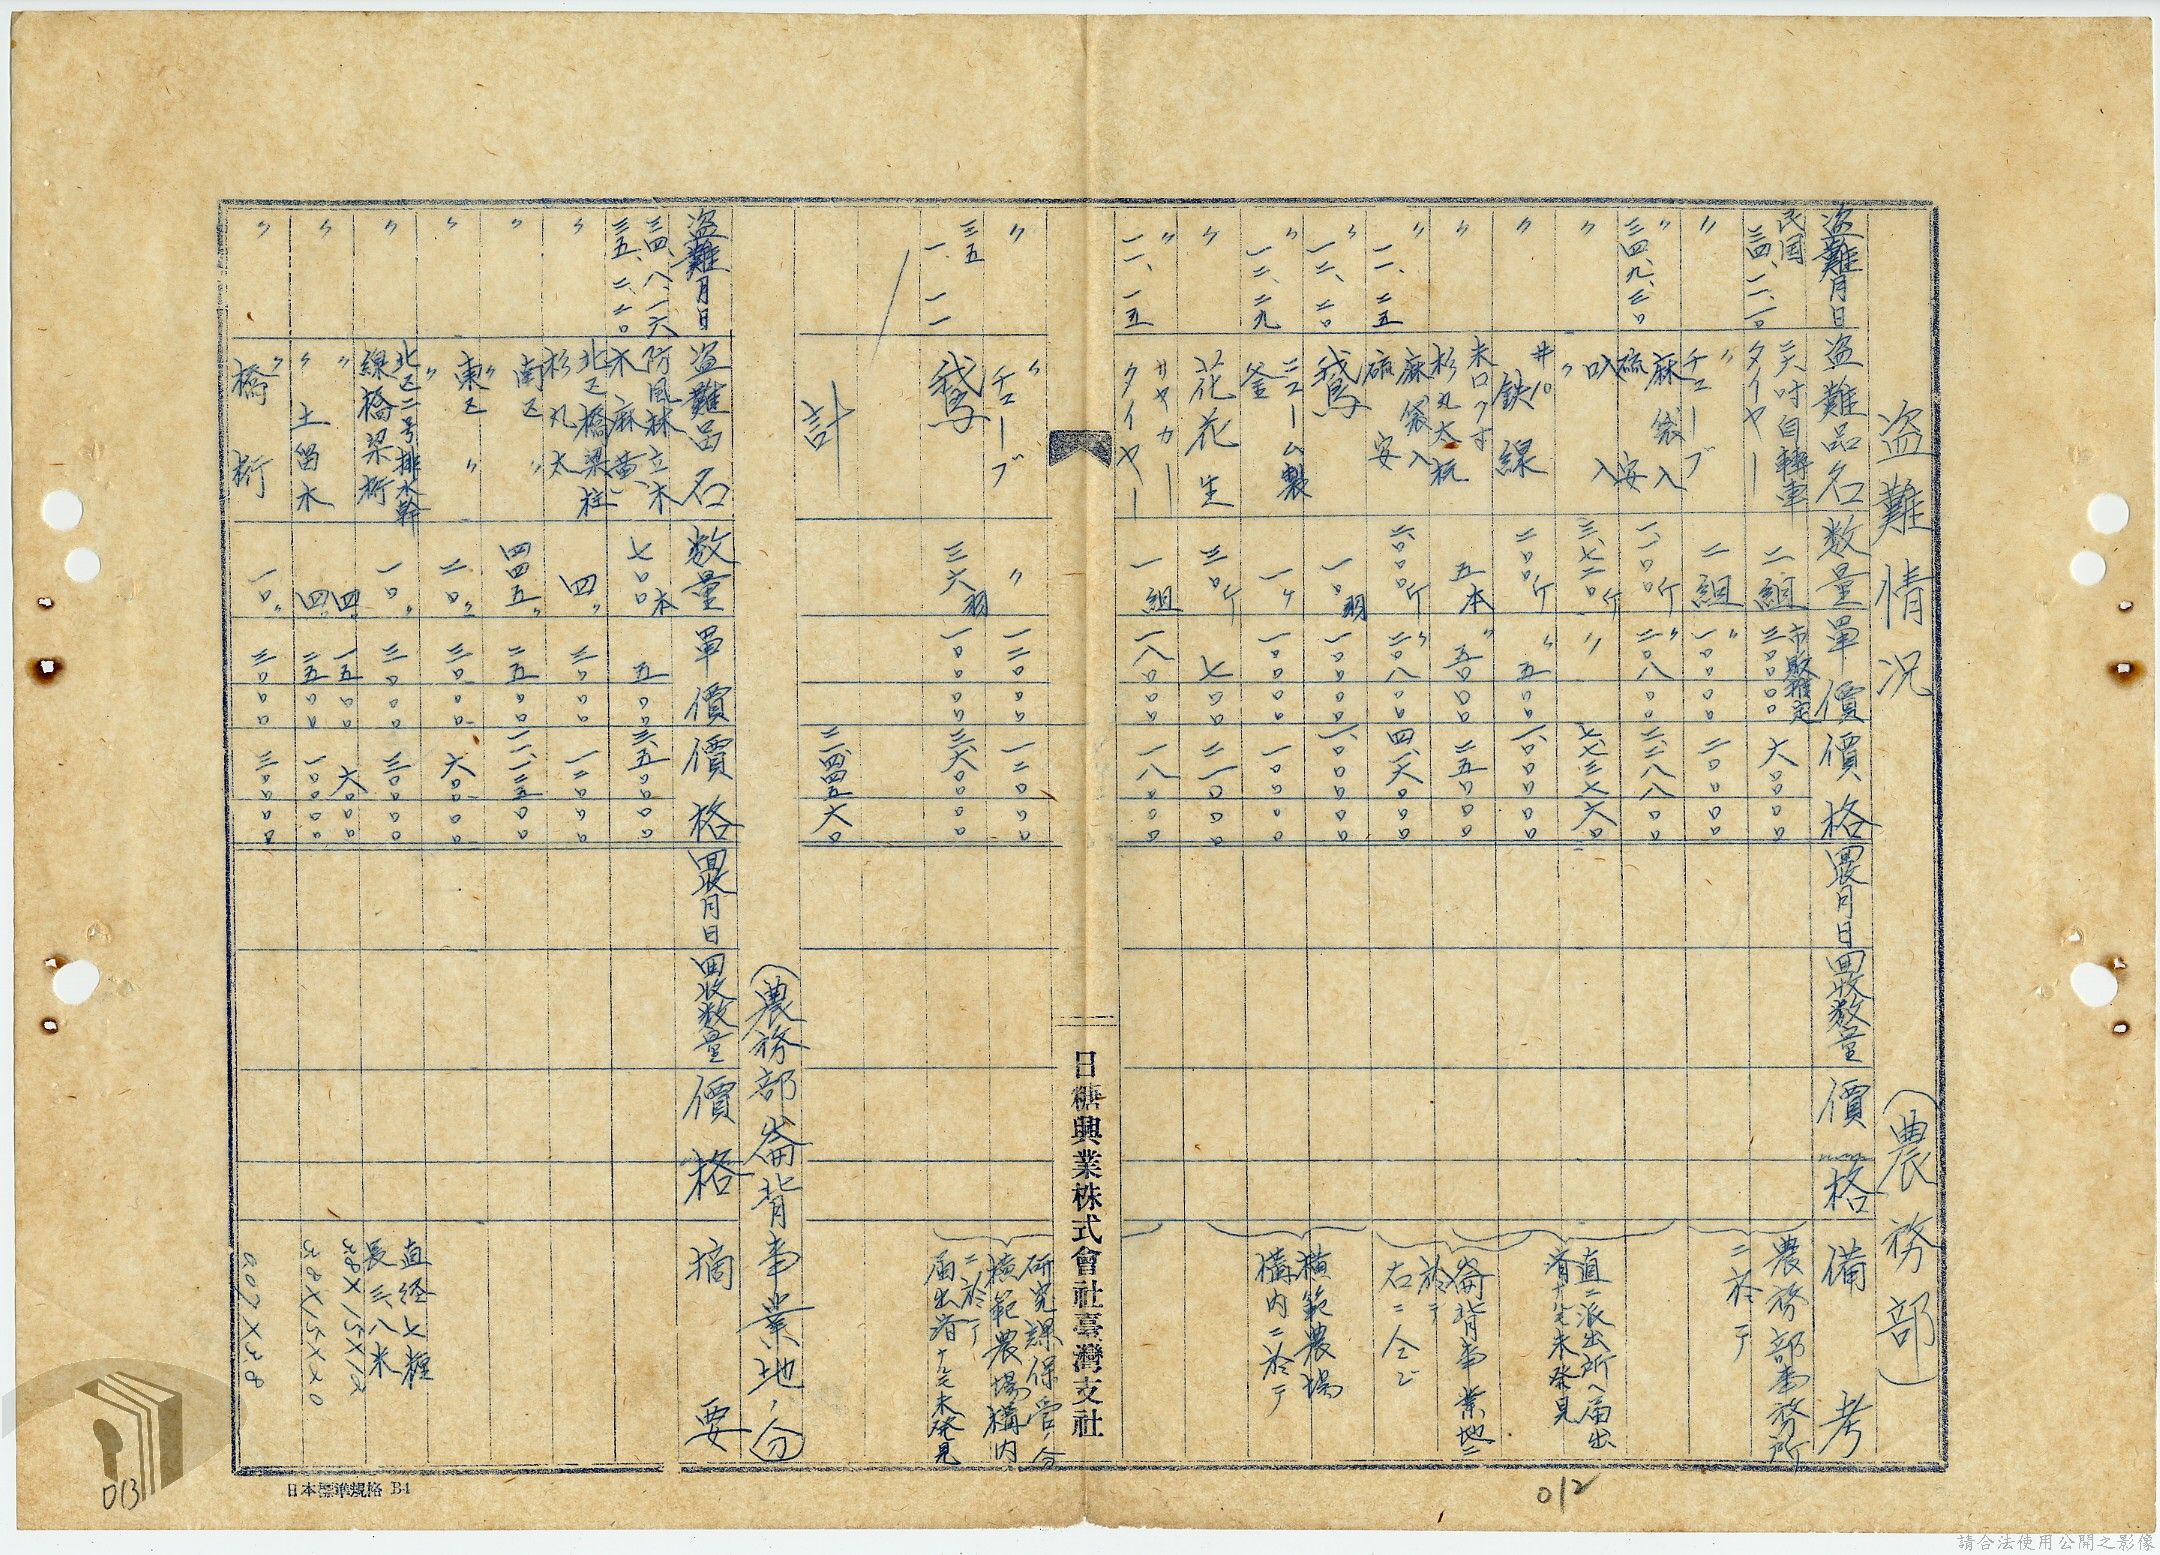 盗難情況
(農務部)
盗難月日 盗難品名 数量 單價 價格 回收月日 回收数量 價格 備考
民国三四、一一、一〇 二六吋自轉車タイヤー 二組 市販推定 三〇〇〇〇 六〇〇〇〇 農務部事務所ニ於テ
〃 〃チューブ 二組 〃一〇〇〇〇 二〇〇〇〇
〃三四、九、三〇 麻袋入硫安 一、一〇〇斤 〃二〇八〇〇 二、二八八〇〇
〃 〃叺入 三、七二〇斤 〃 七、七三七六〇 直ニ派出所ヘ届出
〃 鉄線 二〇〇斤 〃五〇〇 一、〇〇〇〇〇
〃 末口 杉丸太杭 五本 〃五〇〇〇 二五〇〇〇 崙背事業地ニ於テ
〃一一、二五 麻袋入硫安 斤 〃二〇八〇〇 右ニ仝ジ
〃一二、二〇 鵞 一〇羽 一〇〇〇〇 一、〇〇〇〇〇 模範農場構内ニ於テ
〃一二、二九 ニューム製釜 一ヶ 一〇〇〇〇 一〇〇〇〇
〃 花花生 三〇斤 七〇〇 二一〇〇〇
〃一一、一五 サヤカータイヤー 一組 一八〇〇〇 一八〇〇〇
日糖興業株式會社臺灣支社
〃 〃チューブ 〃 一二〇〇〇 一二〇〇〇 研究課保管ノ分
三五、一、一一 鵞 三六羽 一〇〇〇〇 三、六〇〇〇〇 模範農場構内ニ於テ 届出済ナルモ未発見
計 二一、四四五六〇
(農務部崙背事業地ノ分)
盗難月日 盗難品名 数量 單價 價格 回收月日 回收数量 價格 摘要
三四、八、一六 三五、二、二〇 防風林立木 木麻黄 七〇〇本 五〇〇 三、五〇〇〇〇
〃 北区橋梁柱杉丸太 四〃 三〇〇〇 一二〇〇〇
〃 南区〃 四四五〃 二五〇〇 一一、一二五〇〇
〃 東区〃 二〇〃 三〇〇〇 六〇〇〇〇
〃 北区二号排水幹線橋梁桁 一〇〃 三〇〇〇 三〇〇〇〇 直径七糎 長三、八米
〃 〃 四〃 一五〇〇 六〇〇〇
〃土留木 四〃 二五〇〇 一〇〇〇〇
〃 〃橋桁 一〇〃 三〇〇〇 三〇〇〇〇
日本標準規格 B4
013
012
請合法使用公開之影像